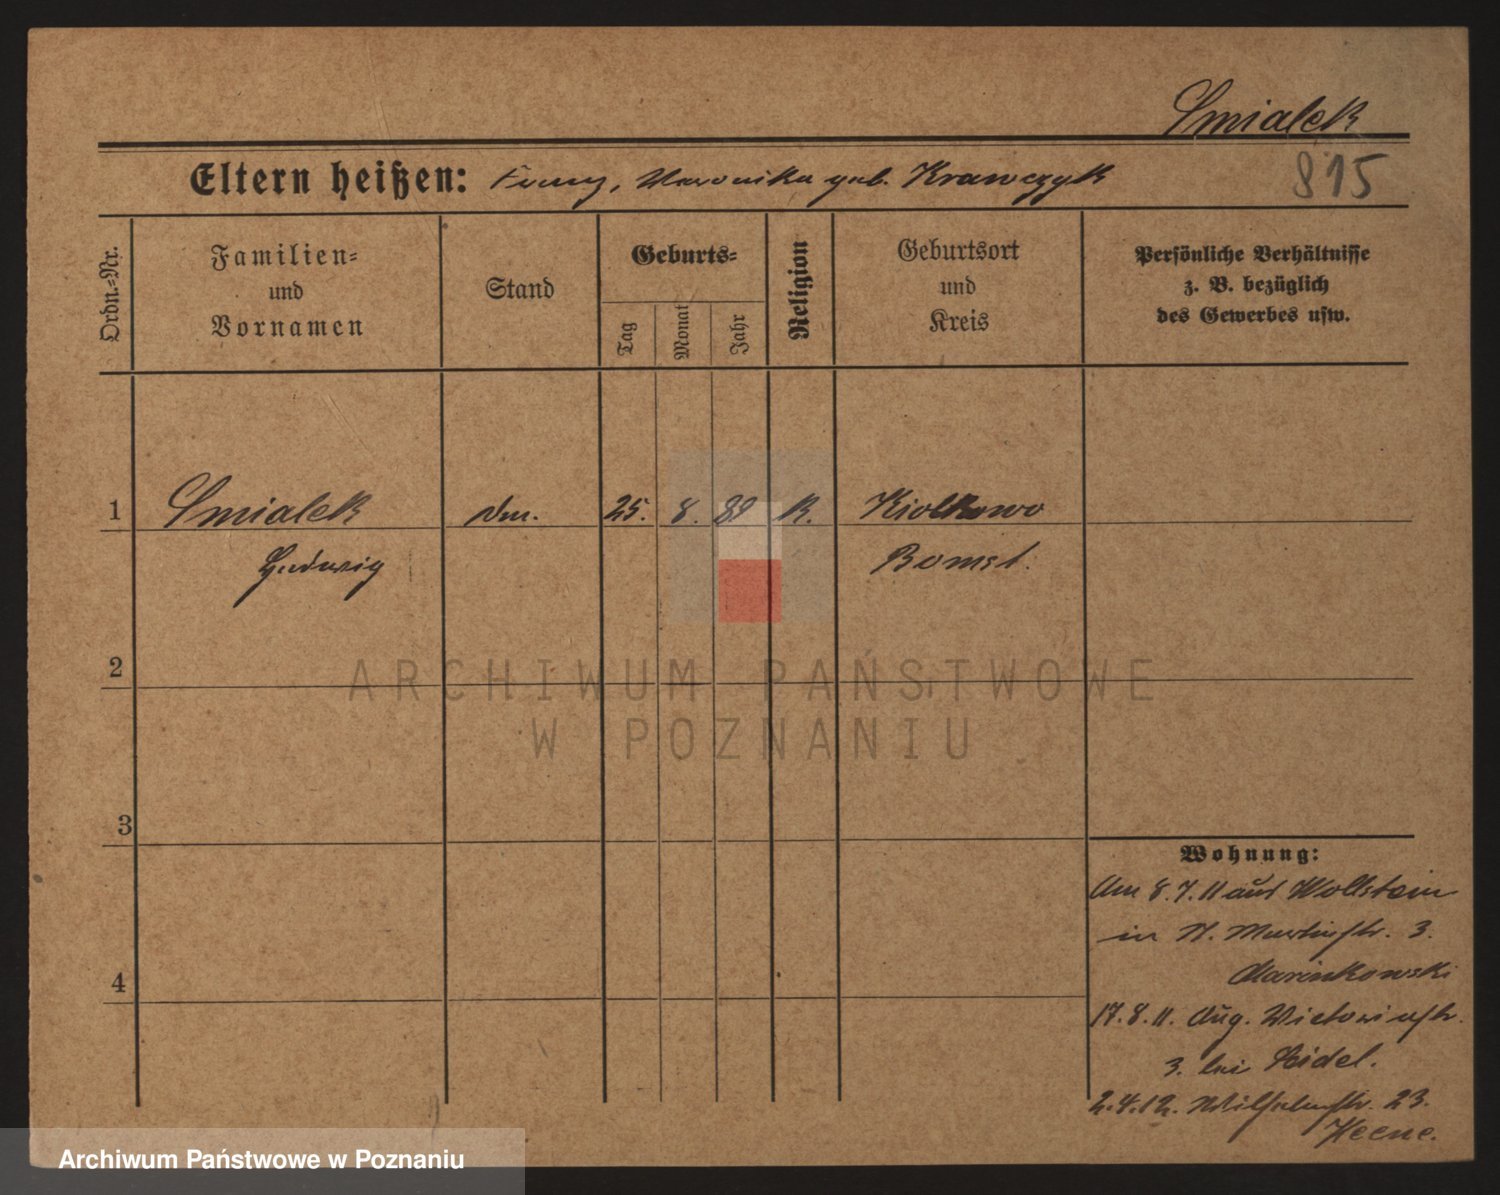 Smialek
815
Eltern heißen: Franz, Veronika geb. Krawczyk
Ordn.-Nr.
Familien-
und
Vornamen
Stand
Geburts-
Tag
Monat
Jahr
Religion
Geburtsort
und
Kreis
Persönliche Verhältnisse
z. B. bezüglich
des Gewerbes usw.
1 Smialek 25. 8. 89 k. Kiolkowo
Ludwig Bomst.
2
3
4
Wohnung:
Am 8.7.11 aus Wollstein
in St. Martinstr. 3.
17.8.11. Aug. Victoriastr.
3. bei Seidel.
2.4.12. Wilhelmstr. 23.
Heene.
ARCHIWUM PAŃSTWOWE
W POZNANIU
Archiwum Państwowe w Poznaniu